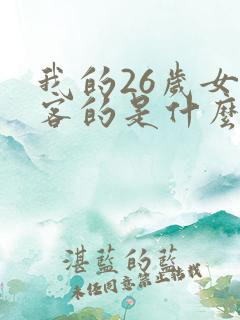 我的26歲女
客的是什麼
湛藍的藍
未任同意禁止轉載